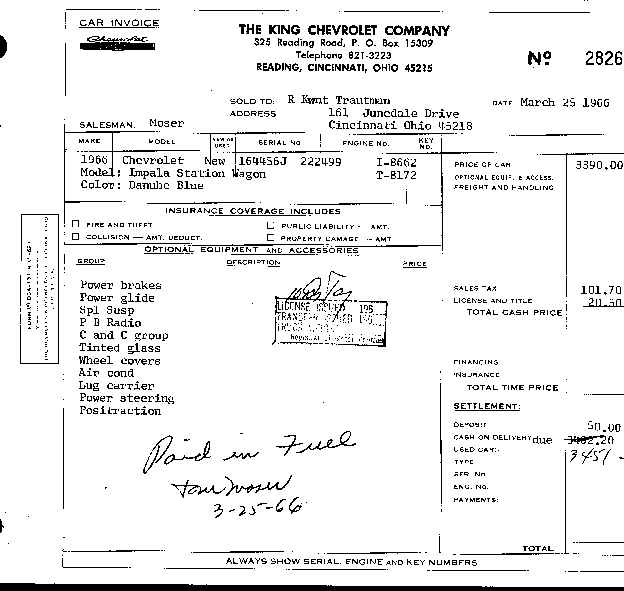 CAR INVOICE
Chevrolet
THE KING CHEVROLET COMPANY
325 Reading Road, P. O. Box 15309
Telephone 821-3223
READING, CINCINNATI, OHIO 45215
No 2826
SOLD TO: R Kwnt Trautman
DATE March 25 1966
ADDRESS 161 Junedale Drive
Cincinnati Ohio 45218
SALESMAN. Moser
MAKE MODEL NEW OR USED SERIAL NO ENGINE NO. KEY NO.
1966 Chevrolet New 164456J 222499 I-8662
Model: Impala Station Wagon T-8172
Color: Danube Blue
PRICE OF CAR 3390.00
OPTIONAL EQUIP. & ACCESS.
FREIGHT AND HANDLING
INSURANCE COVERAGE INCLUDES
FIRE AND THEFT PUBLIC LIABILITY - AMT.
COLLISION — AMT. DEDUCT. PROPERTY DAMAGE - AMT
OPTIONAL EQUIPMENT AND ACCESSORIES
GROUP DESCRIPTION PRICE
Power brakes
Power glide
Spl Susp
P B Radio
C and C group
Tinted glass
Wheel covers
Air cond
Lug carrier
Power steering
Positraction
LICENSE ISSUED 196
SALES TAX 101.70
LICENSE AND TITLE 20.50
TOTAL CASH PRICE
FINANCING
INSURANCE
TOTAL TIME PRICE
SETTLEMENT:
DEPOSIT 50.00
CASH ON DELIVERY due 3462.20
USED CAR: 3451 -
TYPE
SER. No.
ENG. NO.
PAYMENTS:
Paid in Fuel
Tom Moser
3-25-66
TOTAL
ALWAYS SHOW SERIAL, ENGINE AND KEY NUMBERS